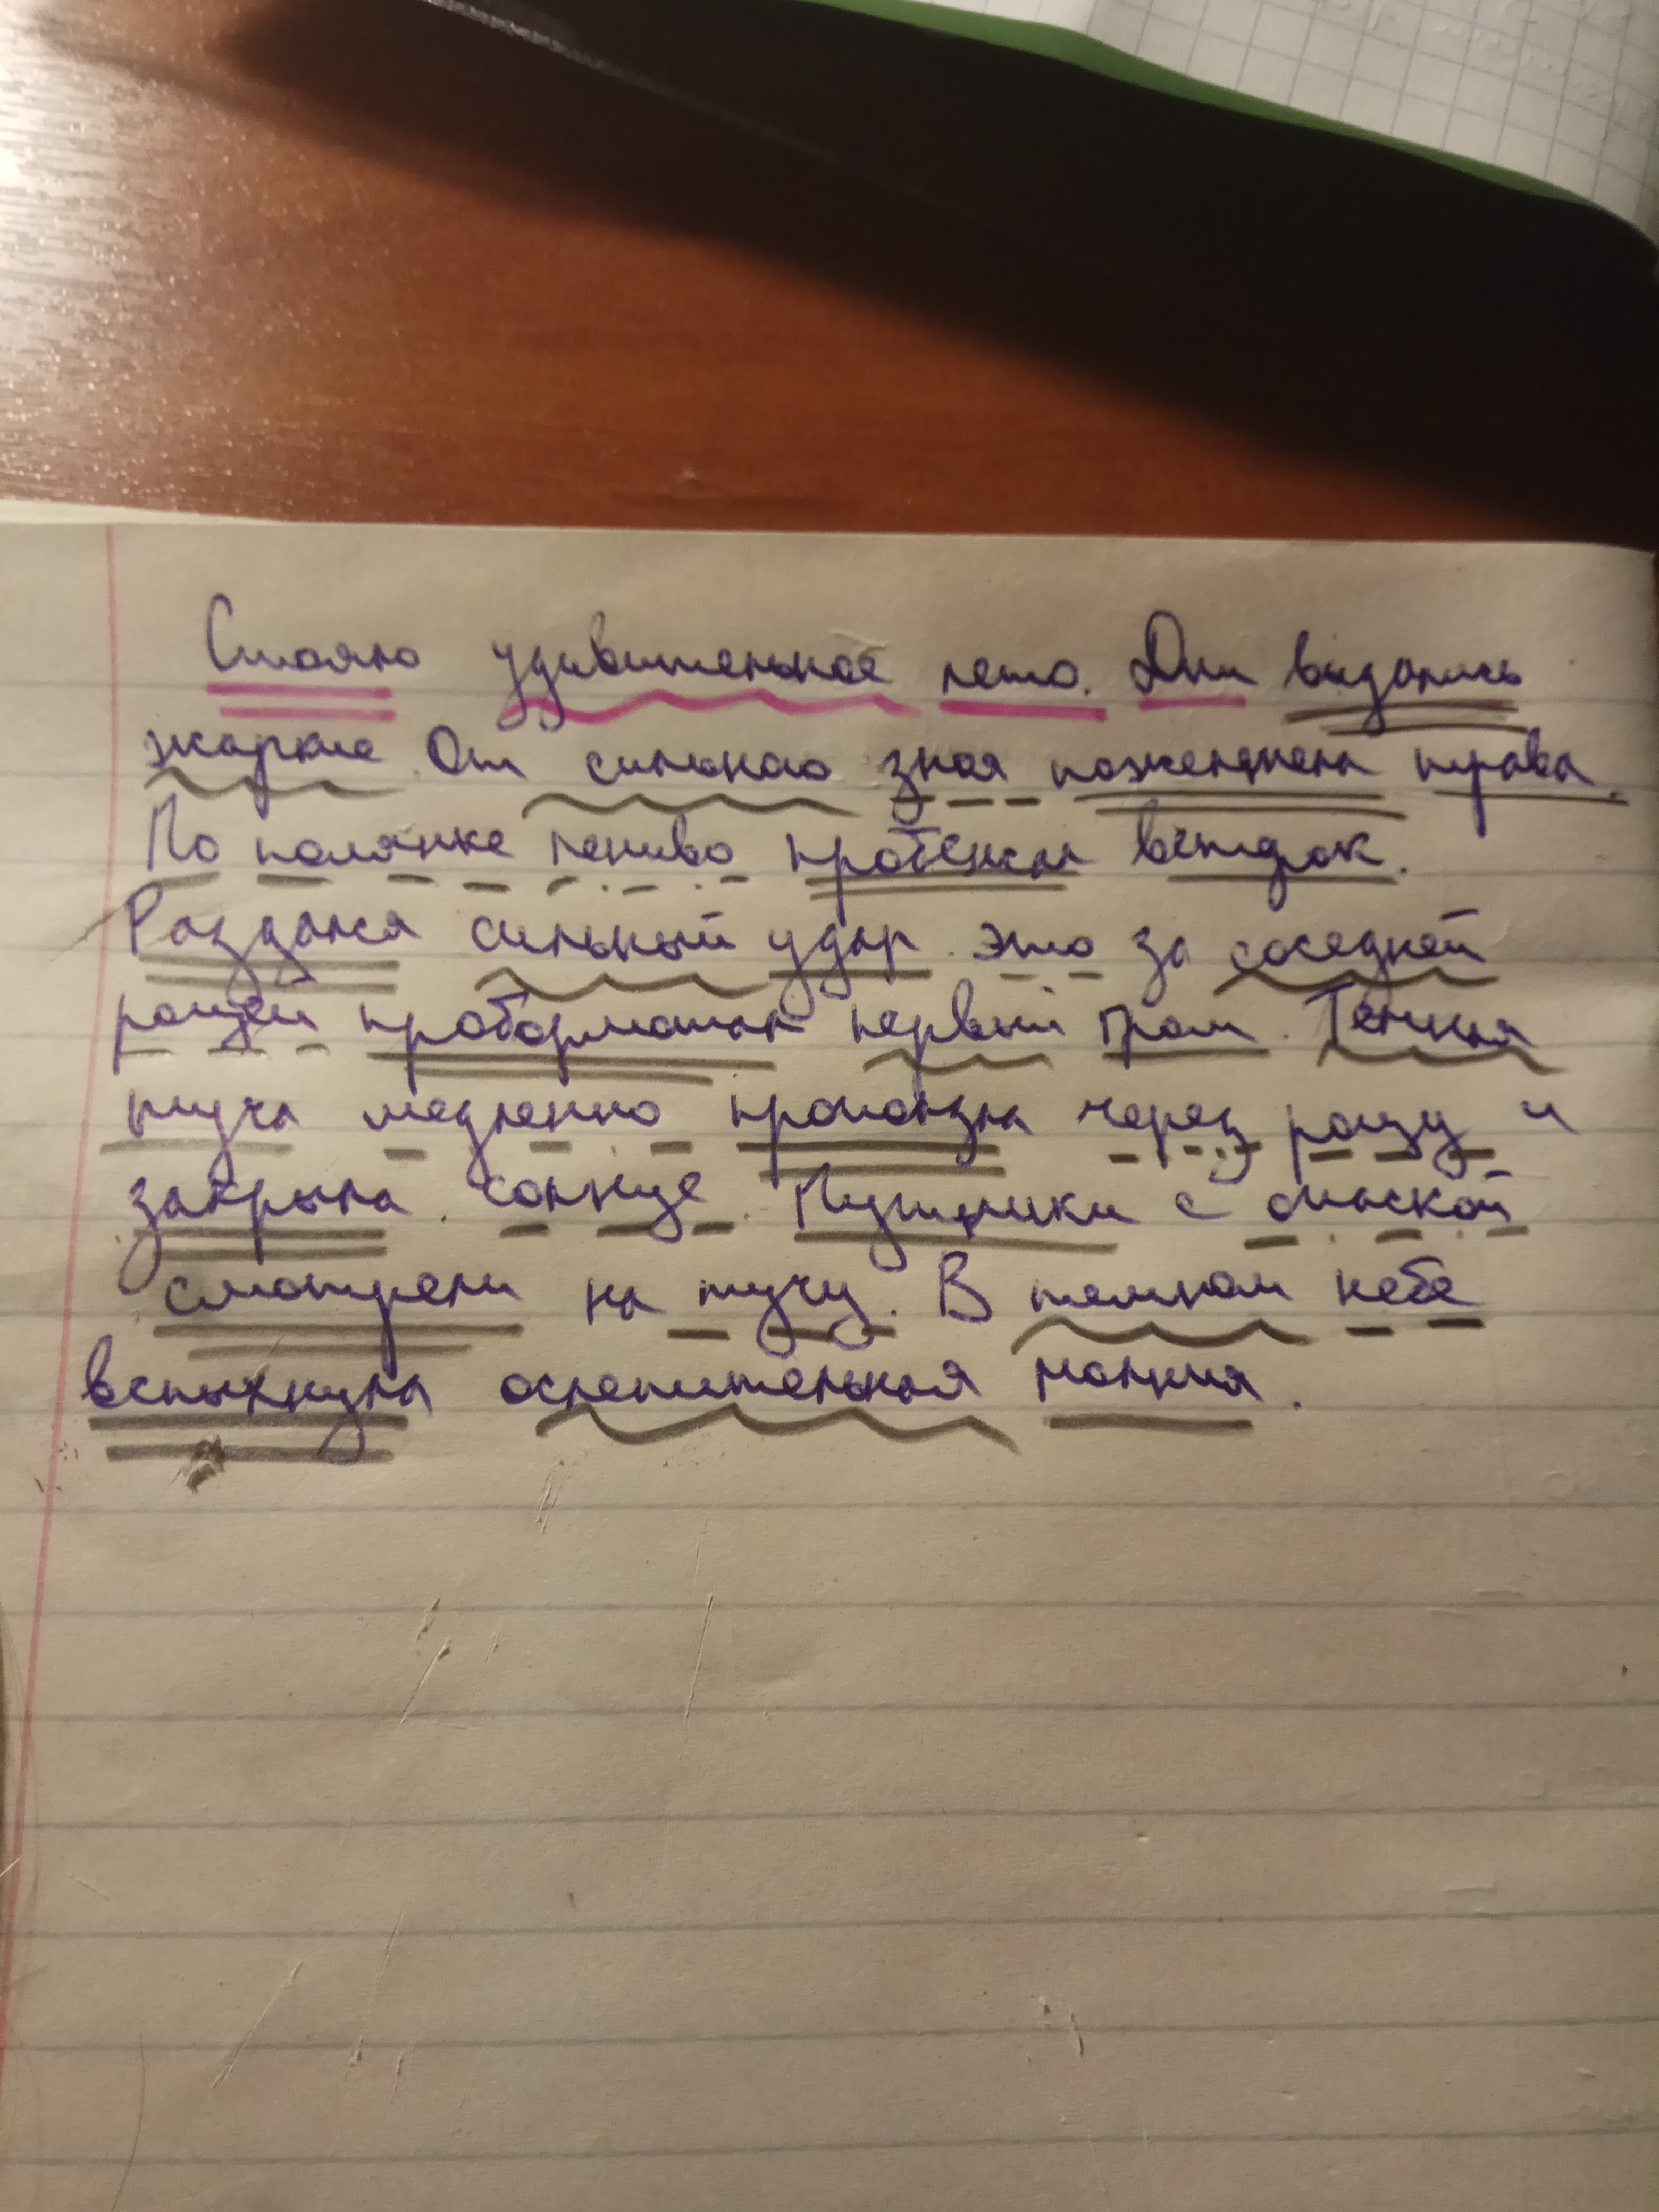 Стояло удивительное лето. Дни выдались
жаркие. От сильнао зноя пожелтела трава.
По полянке лениво пробежал ветерок.
Раздался сильный удар. это за соседней
рощей пробормотал первый гром. Темная
туча медленно проползла через рощу и
закрыла солнце. Путники с опаской
смотрели на тучу. В темном небе
вспыхнула ослепительная молния.